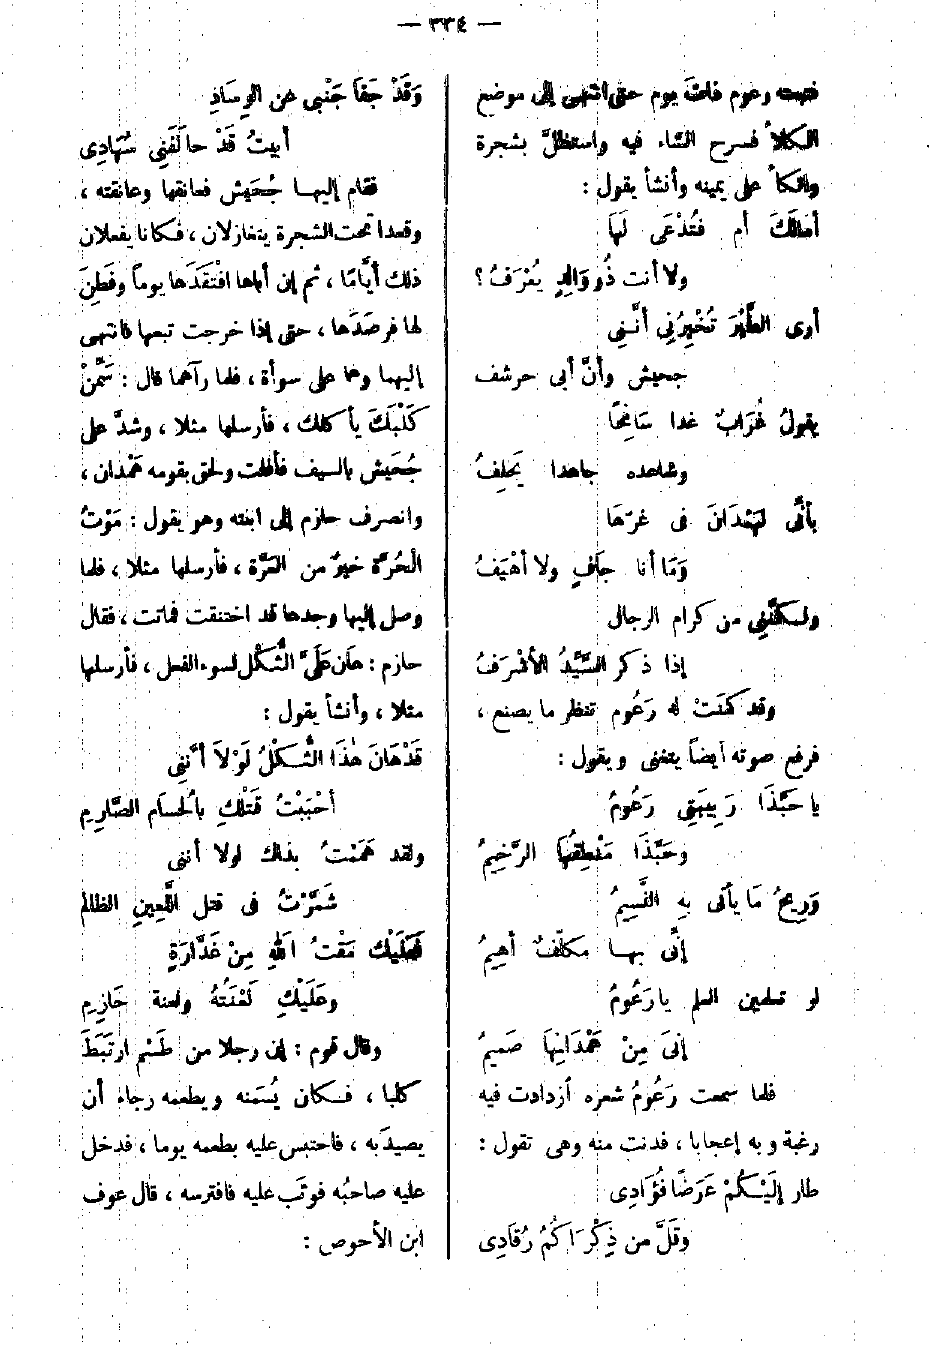 — ٣٣٤ —
فتبعته رعوم ذات يوم حتى انتهى إلى موضع
الكلأ فسرح الشاء فيه واستظلَّ بشجرة
واتكأ على يمينه وأنشأ يقول :
أمَالَكَ أم فتُدْعَى لَهَا
ولا أنت ذُو وَالِدٍ يُعْرَفُ ؟
أرى الطَّيْرَ تُخْبِرُنِي أنَّنِى
جحيش وأنَّ أبى حرشف
يقولُ غُرَابٌ غدا سَانِحًا
وشاهده جاهدا يَحلِفُ
بأنَّى لهَمْدَانَ فى غرّهَا
وَمَا أنا جَافٍ ولا أهْيَفُ
ولسكنَّنِى من كرام الرجال
إذا ذكر السَّيِّدُ الأشْرَفُ
وقد كَمَنَتْ له رَعُوم تنظر ما يصنع ،
فرفع صوته أيضاً يتغنى ويقول :
يا حَبَّذَا رَبِيبَتِى رَعُومُ
وحَبَّذَا مَنْطِقُهَا الرَّخِيمُ
وَرِيحُ مَا يأتى بِهِ النَّسِيمُ
إنِّى بهـا مكلّفٌ أهِيمُ
لو تعلمين العلم يا رَعُومُ
إنىَ مِنْ هَمْدَانِهَا صَمِيمُ
فلما سمعت رَعُومُ شعره ازدادت فيه
رغبة وبه إعجابا ، فدنت منه وهى تقول :
طار إلَيْـكُمْ عَرَضًا فُؤَادِى
وقَلَّ من ذِكْرَاكُمُ رُقَادِى
وَقَدْ جَفَا جَنْبى عن الوِسَادِ
أبيتُ قَدْ حالَفَنِى سُهَادِى
فقام إليهـا جُحَيْش فعانقها وعانقته ،
وقعدا تحت الشجرة يتغازلان ، فكانا يفعلان
ذلك أيَّامًا ، ثم إن أباها افْتَقَدَها يوماً وفَطِنَ
لها فرصَدَها ، حتى إذا خرجت تبعها فانتهى
إليهما وهما على سوأة ، فلما رآهما قال : سَمِّنْ
كَلْبَكَ يأكلك ، فأرسلها مثلا ، وشدَّ على
جُحَيْش بالسيف فأفلت ولحق بقومه هَمْدان ،
وانصرف حازم إلى ابنته وهو يقول : مَوْتُ
الْحُرَّة خيرٌ من العَرَّة ، فأرسلها مثلا ، فلما
وصل إليها وجدها قد اختنقت فماتت ، فقال
حازم : هَان عَلَيَّ الثُّكْل لسوء الفعل ، فأرسلها
مثلا ، وأنشأ يقول :
قَدْ هَانَ هٰذَا الثُّـكْلُ لَوْلاَ أنَّنِى
أحْبَبْتُ قَتْلَكِ بالحسَام الصَّارِمِ
ولقد هَمَمْتُ بذاك لولا أننى
شَمَّرْتُ فى قتل اللَّعِينِ الظالم
فَعَلَيْك مَقْتُ اللهِ مِنْ غَدَّارَةٍ
وعَلَيْكِ لَعْنَتُهُ ولعنة حَازِمِ
وقال قوم : إن رجلا من طَسْم ارتَبَطَ
كلبا ، فـكان يُسَمنه ويطعمه رجاء أن
يصيدَ به ، فاحتبس عليه بطعمه يوما ، فدخل
عليه صاحبُه فوثَب عليه فافترسه ، قال عوف
ابن الأحوص :